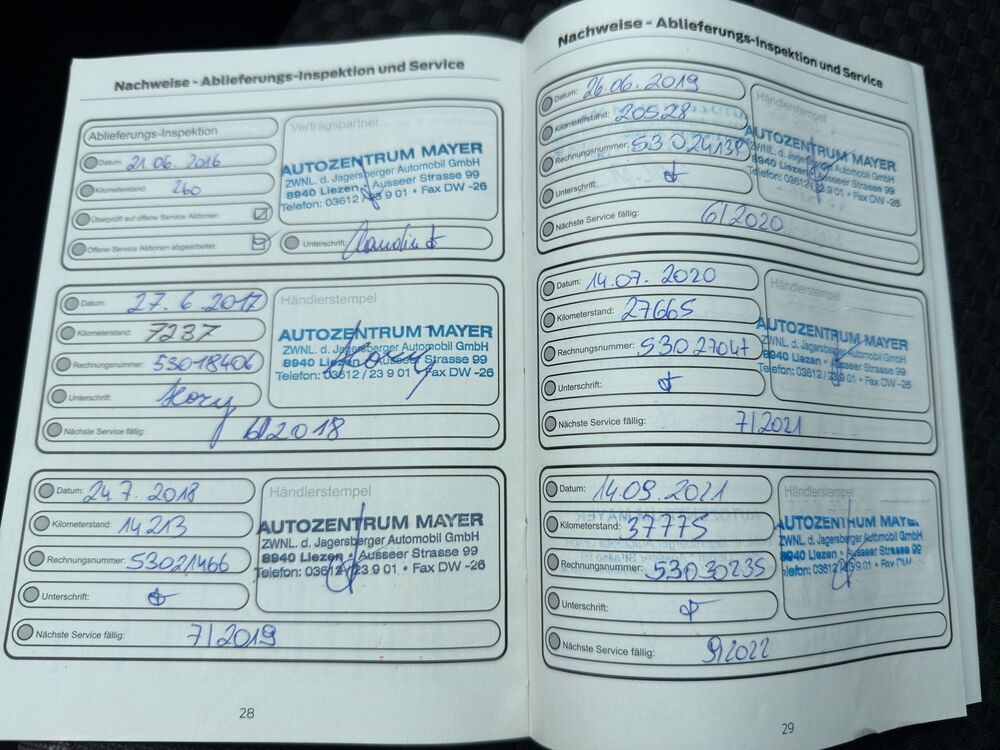 Nachweise - Ablieferungs-Inspektion und Service
Ablieferungs-Inspektion
Datum: 21.06.2016
Kilometerstand: 260
Überprüft auf offene Service Aktionen:
Offene Service Aktionen abgearbeitet:
Vertragspartner
AUTOZENTRUM MAYER
ZWNL. d. Jagersberger Automobil GmbH
8940 Liezen • Ausseer Strasse 99
Telefon: 03612 / 23 9 01 • Fax DW -26
Unterschrift:
Datum: 27.6.2017
Kilometerstand: 7237
Rechnungsnummer: 53018406
Unterschrift:
Nächste Service fällig: 6/2018
Händlerstempel
AUTOZENTRUM MAYER
ZWNL. d. Jagersberger Automobil GmbH
8940 Liezen • Ausseer Strasse 99
Telefon: 03612 / 23 9 01 • Fax DW -26
Datum: 24.7.2018
Kilometerstand: 14213
Rechnungsnummer: 53021466
Unterschrift:
Nächste Service fällig: 7/2019
Händlerstempel
AUTOZENTRUM MAYER
ZWNL. d. Jagersberger Automobil GmbH
8940 Liezen • Ausseer Strasse 99
Telefon: 03612 / 23 9 01 • Fax DW -26
28
Nachweise - Ablieferungs-Inspektion und Service
Datum: 26.06.2019
Kilometerstand: 20528
Rechnungsnummer: 53024139
Unterschrift:
Nächste Service fällig: 6/2020
Händlerstempel
AUTOZENTRUM MAYER
ZWNL. d. Jagersberger Automobil GmbH
8940 Liezen • Ausseer Strasse 99
Telefon: 03612 / 23 9 01 • Fax DW -26
Datum: 14.07.2020
Kilometerstand: 27665
Rechnungsnummer: 53027047
Unterschrift:
Nächste Service fällig: 7/2021
Händlerstempel
AUTOZENTRUM MAYER
ZWNL. d. Jagersberger Automobil GmbH
8940 Liezen • Ausseer Strasse 99
Telefon: 03612 / 23 9 01 • Fax DW -26
Datum: 14.09.2021
Kilometerstand: 37775
Rechnungsnummer: 53030235
Unterschrift:
Nächste Service fällig: 9/2022
Händlerstempel
AUTOZENTRUM MAY
ZWNL. d. Jagersberger Automobil GmbH
8940 Liezen • Ausseer Strasse 99
elefon: 03612 / 23 9 01 • Fax DW
29